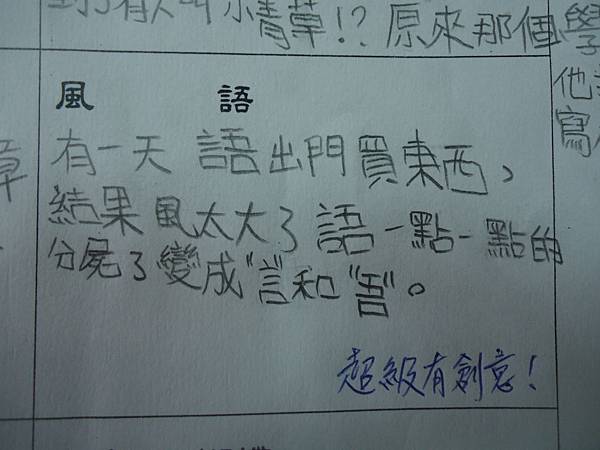 到了有人叫小青草!?原來那個學
風 語
有一天 語出門買東西,
結果風太大了語一點一點的
分屍了變成"言"和"吾"。
超級有創意!
他
寫
章